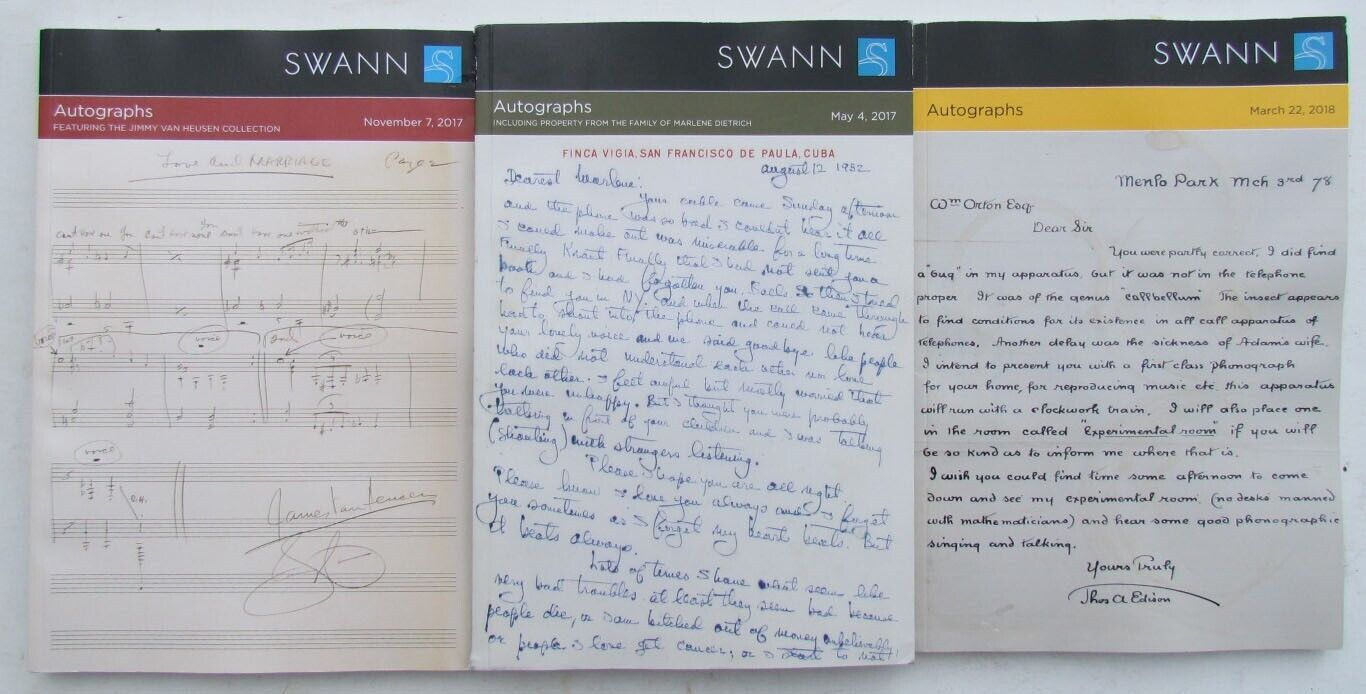 SWANN
Autographs
FEATURING THE JIMMY VAN HEUSEN COLLECTION
November 7, 2017
Love and MARRIAGE
voice
voice
voice
James Van Heusen
SWANN
Autographs
INCLUDING PROPERTY FROM THE FAMILY OF MARLENE DIETRICH
May 4, 2017
FINCA VIGIA, SAN FRANCISCO DE PAULA, CUBA
august 12 1952
Dearest Marlene:
Your cable came Sunday afternoon
and the phone was so bad I couldn't hear it all
I could make out was miserable for a long time
Finally Knant Finally that I had not sent you a
book and I had forgotten you. Each
to find you in NY and when the call came through
had to shout into the phone and could not hear
your lovely voice and we said goodbye like people
who did not understand each other nor love
each other. I feel awful but mostly worried that
you were unhappy. But I thought you were probably
talking in front of your children and I was talking
(shouting) with strangers listening.
Please I hope you are all right.
Please know I love you always and I forget
you sometimes as I forget my heart beats. But
it beats always.
Lots of times
very bad troubles at least they seem bad because
people die, or I am bitched out of money unbelievably
or people I love get cancer; or I to not
SWANN
Autographs
March 22, 2018
Menlo Park Mch 3rd 78
Wm Orton Esq
Dear Sir
You were partly correct, I did find
a "bug" in my apparatus, but it was not in the telephone
proper It was of the genus "callbellum" The insect appears
to find conditions for its existence in all call apparatus of
telephones. Another delay was the sickness of Adam's wife.
I intend to present you with a first class phonograph
for your home, for reproducing music etc. this apparatus
will run with a clockwork train, I will also place one
in the room called "experimental room" if you will
be so kind us to inform me where that is.
I wish you could find time some afternoon to come
down and see my experimental room (no desks manned
with mathematicians) and hear some good phonographic
singing and talking.
Yours Truly
Thos A Edison